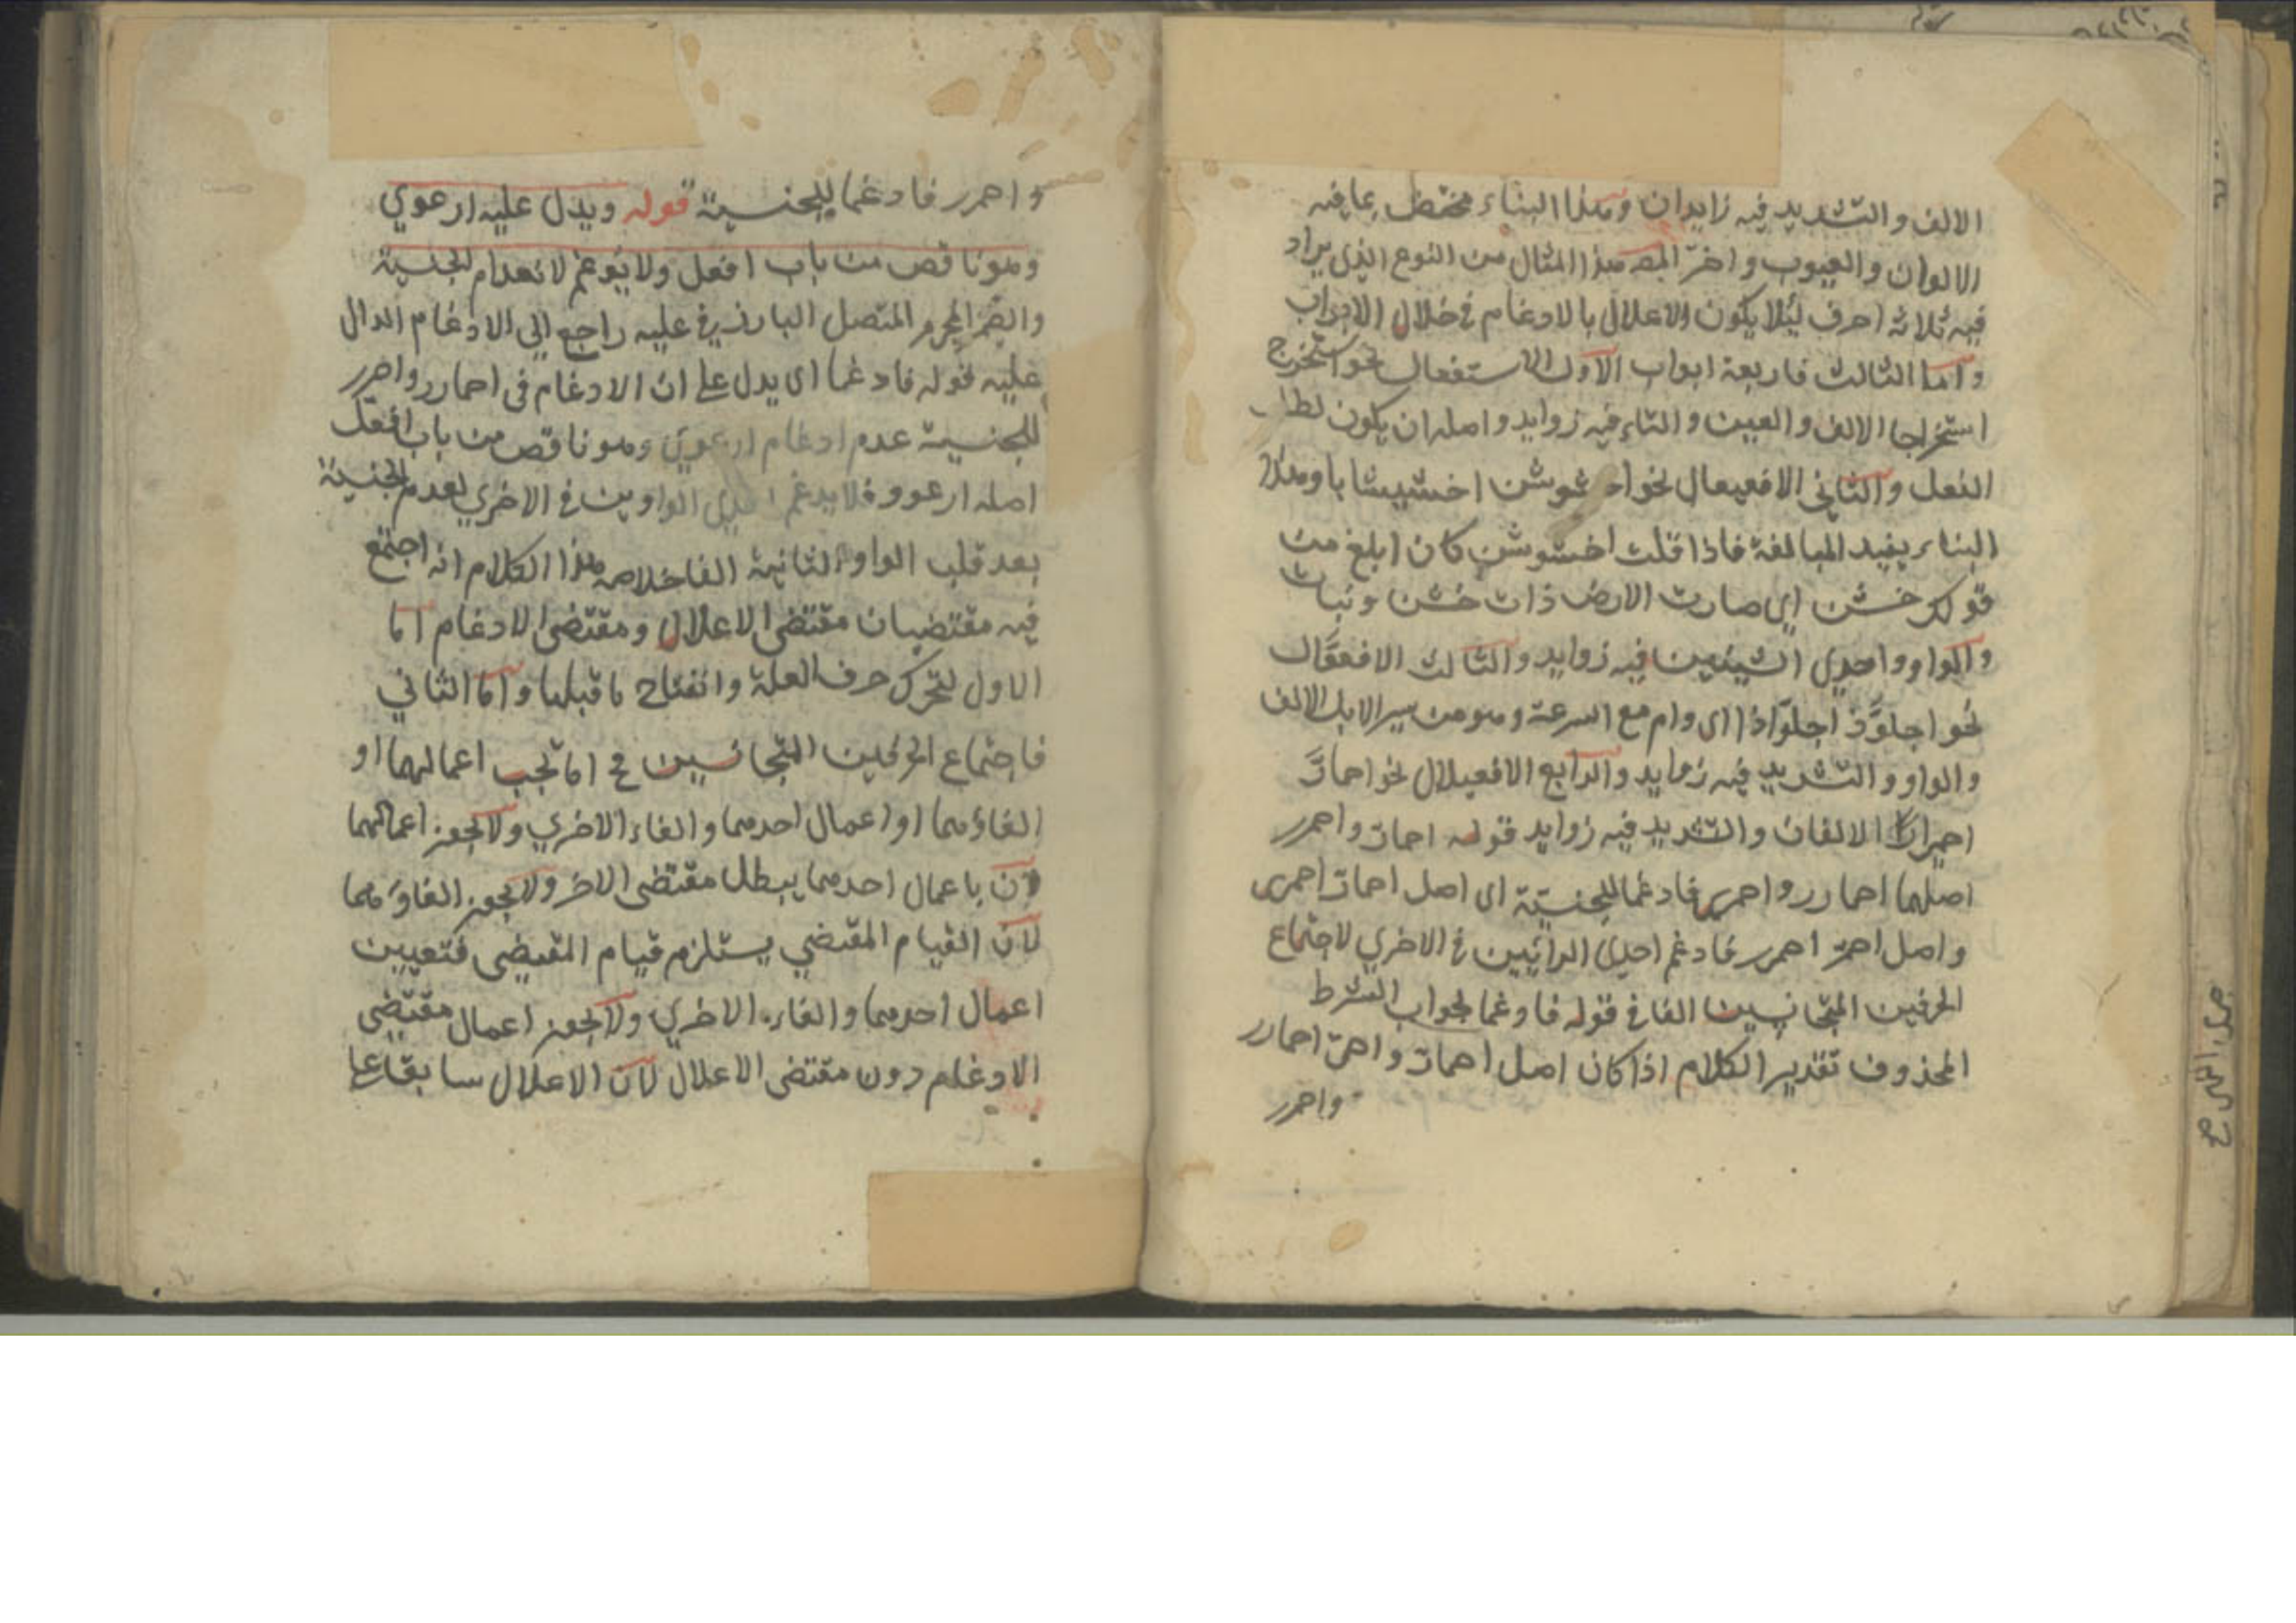 الالف والتشديد فيه زايدان وهذا البناء مختص بما فيه
الالوان والعيوب واخر المص هذا المثال من النوع الذي يراد
فيه ثلاثة احرف ليئلا يكون الاعلال بالادغام في خلال الابواب
واما الثالث فاربعة ابواب الاول الاستفعال نحو استخرج
استخراجا الالف والسين والتاء فيه زوايد واصله ان يكون لطلب
الفعل والثاني الافعيعال نحو اخشوشن اخشيشابا وهذا
البناء يفيد المبالغة فاذا قلت اخشوشن كان ابلغ من
قولك خشن اي صارت الارض ذات خشن ونبات
والواو واحدي الشينين فيه زوايد والثالث الافعوّال
نحو اجلوّذ اجلوّاذا اي دام مع السرعة وهو من سير الابل الالف
والواو والتشديد فيه زوايد والرابع الافعيلال نحو احمارّ
احميرارا الالفان والتشديد فيه زوايد قوله احمارّ واحمرر
اصلهما احمارر واحمرر فادغما للجنسيّة اي اصل احمارّ احمرر
واصل احمرّ احمرر فادغم احدي الرائيين في الاخري لاجتماع
الحرفين المتجانسين الفا في قوله فادغما لجواب الشرط
المحذوف تقدير الكلام اذا كان اصل احمارّ واحمرّ احمارر
واحمرر
واحمرر فادغما للجنسية قوله ويدل عليه ارعوي
وهو ناقص من باب افعل ولا يدغم لانعدام الجنسية
والضمير المجرور المتصل البارز في عليه راجع الي الادغام الدال
عليه قوله فادغما اي يدل علي ان الادغام في احمارر واحمرر
للجنسية عدم ادغام ارعوي وهو ناقص من باب افعل
اصله ارعوو فلا يدغم احدي الواوين في الاخري لعدم الجنسية
بعد قلب الواو الثانية الفا خلاصه هذا الكلام انه اجتمع
فيه مقتضيان مقتضي الاعلال ومقتضي الادغام اما
الاول لتحرك حرف العلة وانفتاح ما قبلها واما الثاني
فاجتماع الحرفين المتجانسين ح اما تجب اعمالهما او
الغاؤهما او اعمال احدهما والغاء الاخري ولا يجوز اعمالهما
لان باعمال احدهما يبطل مقتضي الاخر ولا يجوز الغاؤهما
لان القيام المقتضي يستلزم قيام المقتضي فتعيين
اعمال احدهما والغاء الاخري ولا يجوز اعمال مقتضي
الادغام دون مقتضي الاعلال لان الاعلال سابقا علي